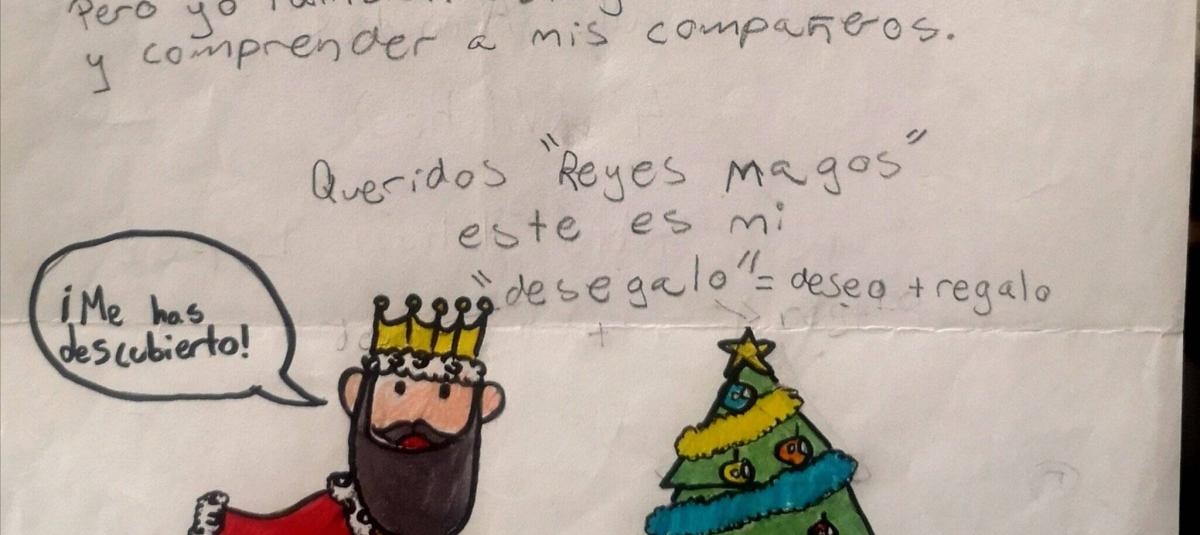 Pero yo
y comprender a mis compañeros.
Queridos "Reyes magos"
este es mi
"desegalo" = deseo + regalo
¡Me has
descubierto!